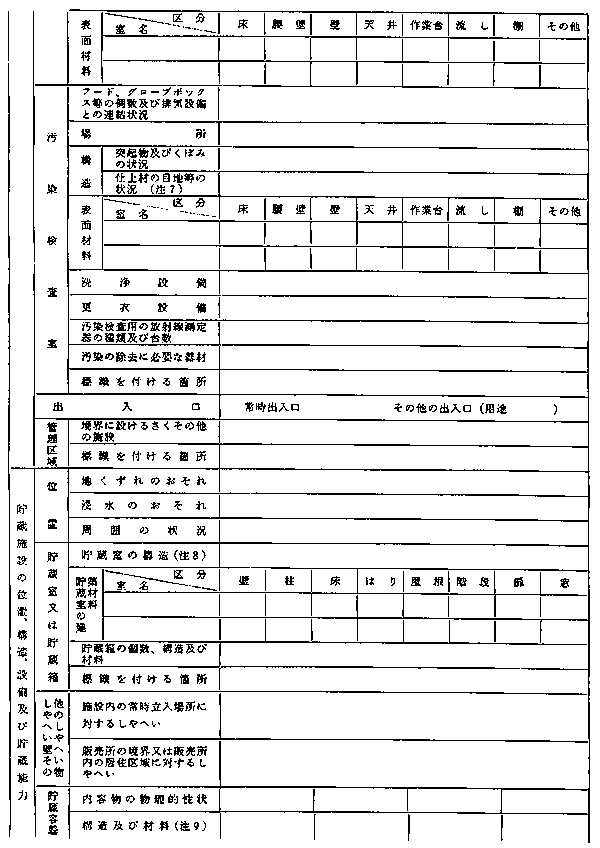 表面材料
区分
室名
床 腰壁 壁 天井 作業台 流し 棚 その他
汚染検査室
フード、グローブボック
ス等の個数及び排気設備
との連結状況
場所
構造
突起物及びくぼみ
の状況
仕上材の目地等の
状況（注7）
表面材料
区分
室名
床 腰壁 壁 天井 作業台 流し 棚 その他
洗浄設備
更衣設備
汚染検査用の放射線測定
器の種類及び台数
汚染の除去に必要な器材
標識を付ける箇所
出入口
常時出入口 その他の出入口（用途 ）
管理区域
境界に設けるさくその他
の施設
標識を付ける箇所
貯蔵施設の位置、構造、設備及び貯蔵能力
位置
地くずれのおそれ
浸水のおそれ
周囲の状況
貯蔵室又は貯蔵箱
貯蔵室の構造（注8）
貯蔵室の建
築材料
区分
室名
壁 柱 床 はり 屋根 階段 扉 窓
貯蔵箱の個数、構造及び
材料
標識を付ける箇所
しやへい壁その
他のしやへい物
施設内の常時立入場所に
対するしやへい
販売所の境界又は販売所
内の居住区域に対するし
やへい
貯蔵容器
内容物の物理的性状
構造及び材料（注9）